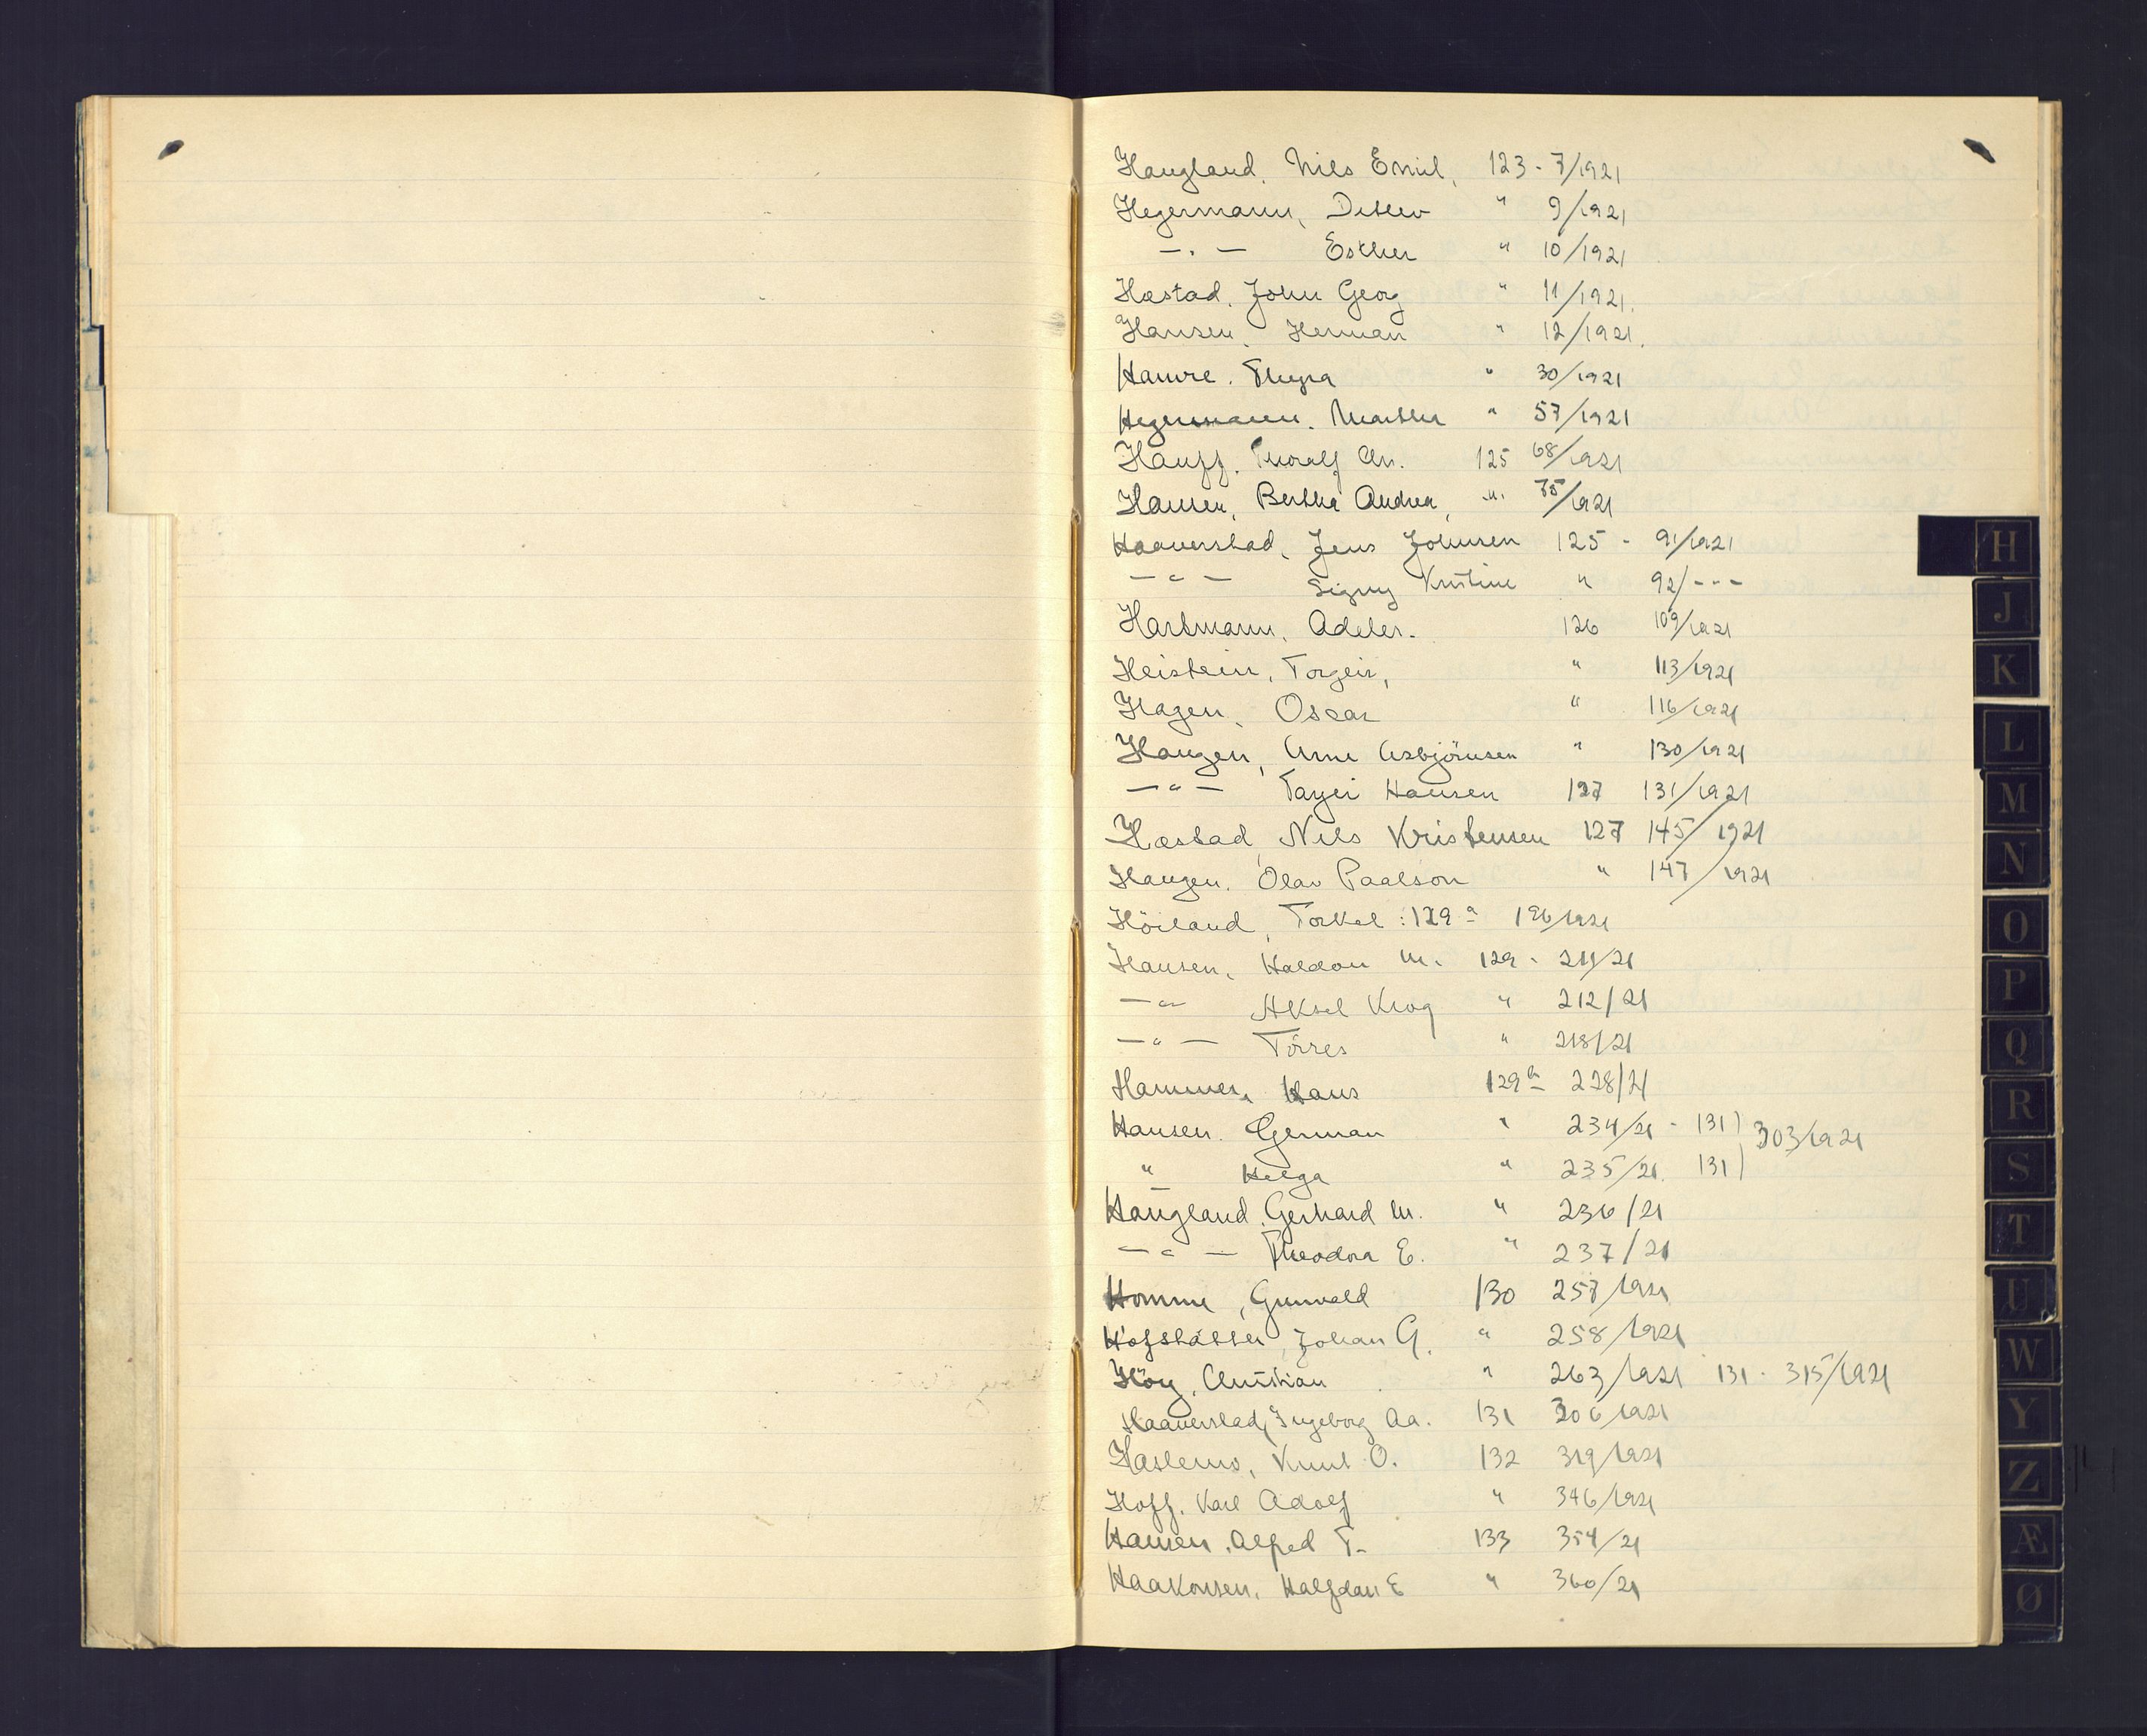 Haugland, Nils Emil, 123 - 7/1921
Hegermann, Detlev " 9/1921
- " - Esther " 10/1921
Hæstad, John Georg " 11/1921.
Hansen, Herman " 12/1921.
Hamre. Thyra " 30/1921
Hegermann. Marthe " 57/1921
Hauff. Thoralf Chr. 125 68/1921
Hansen, Berthe Andrea, " 75/1921
Haaverstad, Jens Johnsen 125 - 91/1921
- " - Signy Kristine " 92/---
Hartmann, Adeler. 126 109/1921
Heistein, Torgeir, " 113/1921
Hagen, Oscar " 116/1921
Haugen, Arne Asbjörnsen " 130/1921
- " - Hansen 127 131/1921
Hæstad, Nils Kristensen 127 145/1921
Haugen. Olav Paalson " 147/1921
Höiland, Torkel : 129 a 196/1921
Hansen, M. 129 - 211/21
- " - Aksel Krog " 212/21
- " - Törres " 218/21
Hammer, Hans 129 a 228/21
Hansen. German " 234/21 - 131) 303/1921
" Helga " 235/21. 131)
Haugland, Gerhard M. " 236/21
- " - Theodora E. " 237/21
Homme, Gunvald 130 257/1921
Hofstätter, Johan G. " 258/1921
Höy, Christian " 263/1921 131 - 315/1921
Haaverstad, Ingeborg Aa. 131 306/1921
Haslemo, Knut O. 132 319/1921
Hoff. Karl Adolf " 346/1921
Hansen, Alfred T. 133 354/21
Haakonsen, Halfdan E " 360/21
H
J
K
L
M
N
O
P
Q
R
S
T
U
W
Y
Z
Æ
Ø